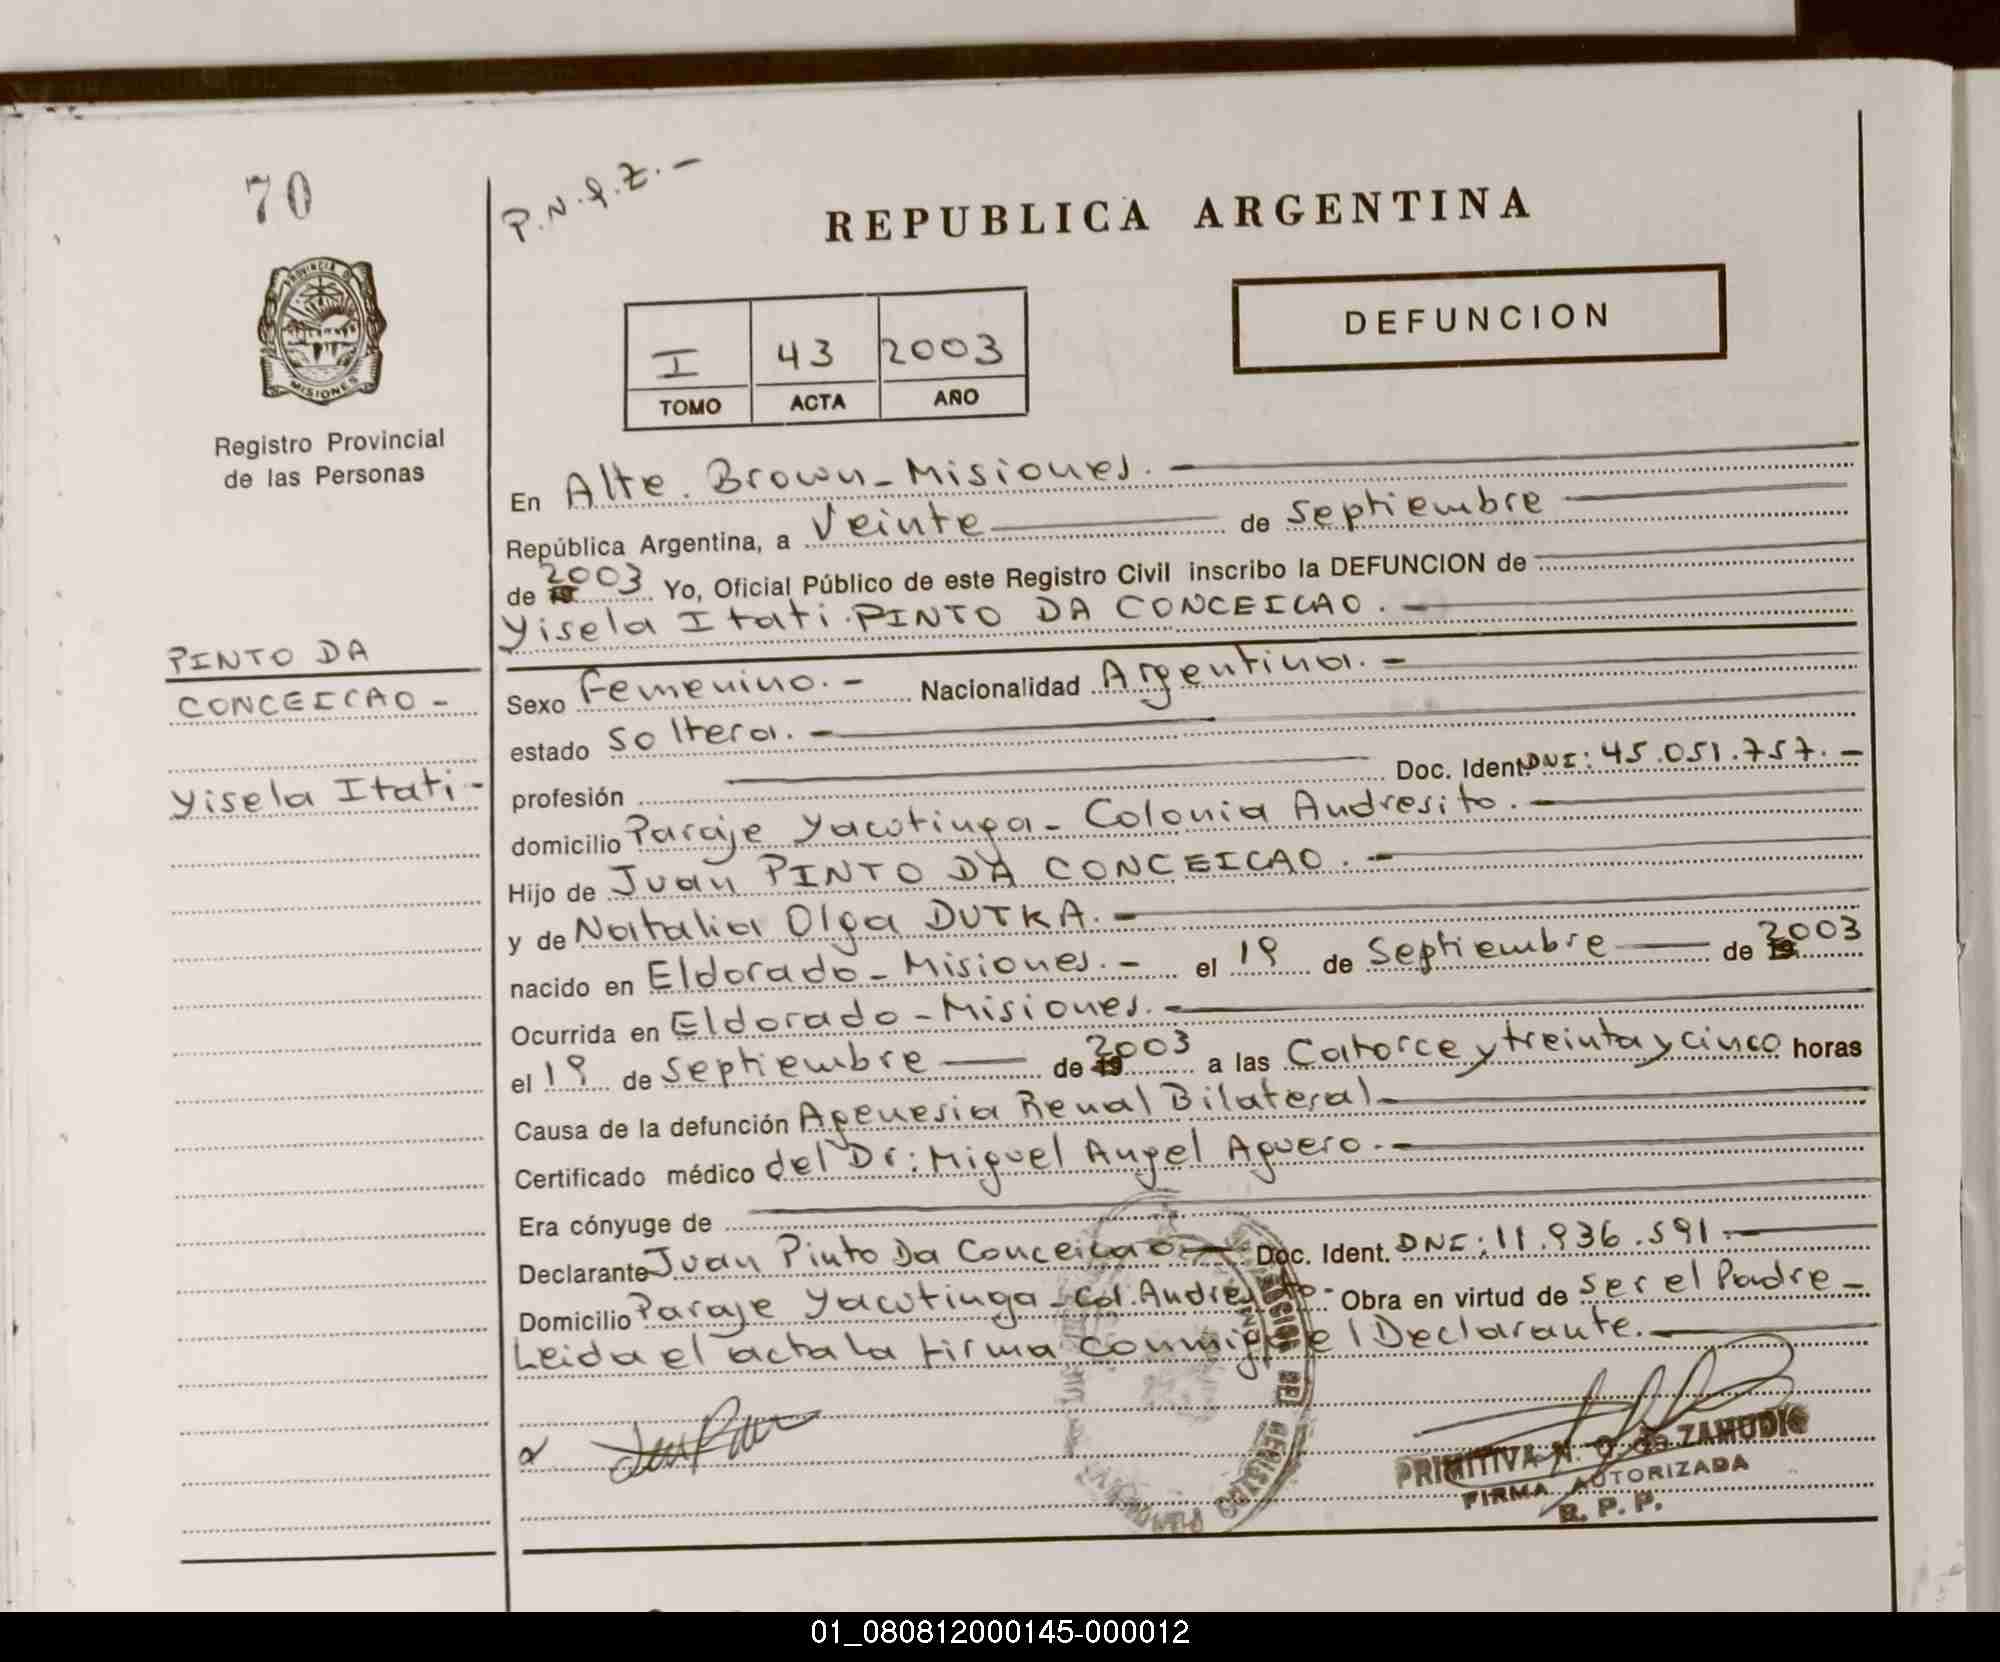 70
P.N.Q.Z.-
REPUBLICA ARGENTINA
PROVINCIA DE
MISIONES
Registro Provincial
de las Personas
I 43 2003
TOMO ACTA AÑO
DEFUNCION
En Alte. Brown-Misiones.-
República Argentina, a Veinte de septiembre
de 2003 Yo, Oficial Público de este Registro Civil inscribo la DEFUNCION de
Yisela Itati.PINTO DA CONCEICAO.-
PINTO DA
CONCEICAO-
Yisela Itati-
Sexo Femenino.- Nacionalidad Argentina.-
estado soltera.-
profesión Doc. Ident. DNI: 45.051.757.-
domicilio Paraje Yacutinga- Colonia Andresito.-
Hijo de Juan PINTO DA CONCEICAO.-
y de Natalia Olga DUTKA.-
nacido en Eldorado-Misiones.- el 19 de Septiembre de 2003
Ocurrida en Eldorado-Misiones.-
el 19 de septiembre de 2003 a las Catorce y treinta y cinco horas
Causa de la defunción Agenesia Renal Bilateral-
Certificado médico del Dr: Miguel Angel Aguero.-
Era cónyuge de
Declarante Juan Pinto Da Conceicao- Doc. Ident. DNI: 11.936.591.-
Domicilio Paraje Yacutinga-Col. Andresito- Obra en virtud de ser el Padre-
Leida el acta la firma conmigo el Declarante.-
PRIMITIVA N. O. de ZAMUDIO
FIRMA AUTORIZADA
R. P. P.
01_080812000145-000012